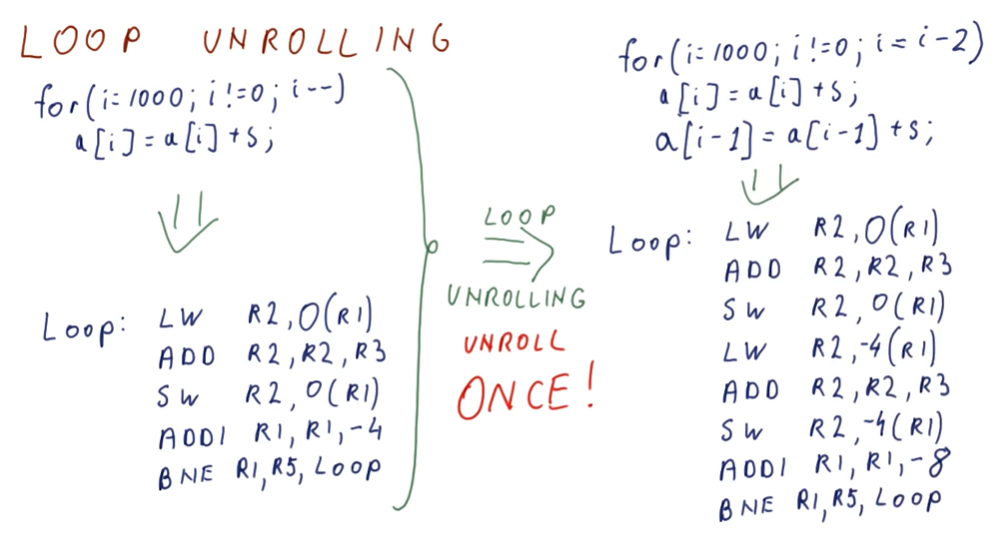 LOOP UNROLLING
for(i=1000; i!=0; i--)
a[i]=a[i]+s;
Loop: LW R2,0(R1)
ADD R2,R2,R3
SW R2,0(R1)
ADDI R1,R1,-4
BNE R1,R5,Loop
LOOP
UNROLLING
UNROLL
ONCE!
for(i=1000; i!=0; i=i-2)
a[i]=a[i]+s;
a[i-1]=a[i-1]+s;
Loop: LW R2,0(R1)
ADD R2,R2,R3
SW R2,0(R1)
LW R2,-4(R1)
ADD R2,R2,R3
SW R2,-4(R1)
ADDI R1,R1,-8
BNE R1,R5,Loop